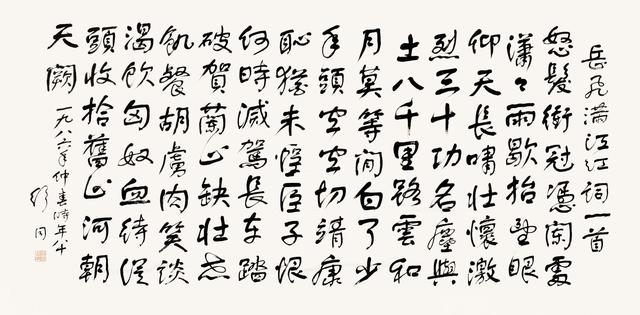 岳飛满江江词一首
怒髮衝冠憑闌處
瀟々雨歇抬望眼
仰天長嘯壯懷激
烈三十功名塵與
土八千里路雲和
月莫等闲白了少
年頭空空切靖康
恥猶未臣子恨
何時滅駕長车踏
破賀蘭山缺壮志
飢餐胡虜肉笑談
渴飲匈奴血待從
頭收拾舊山河朝
天闕
一九八六年仲春時年八十
舒同